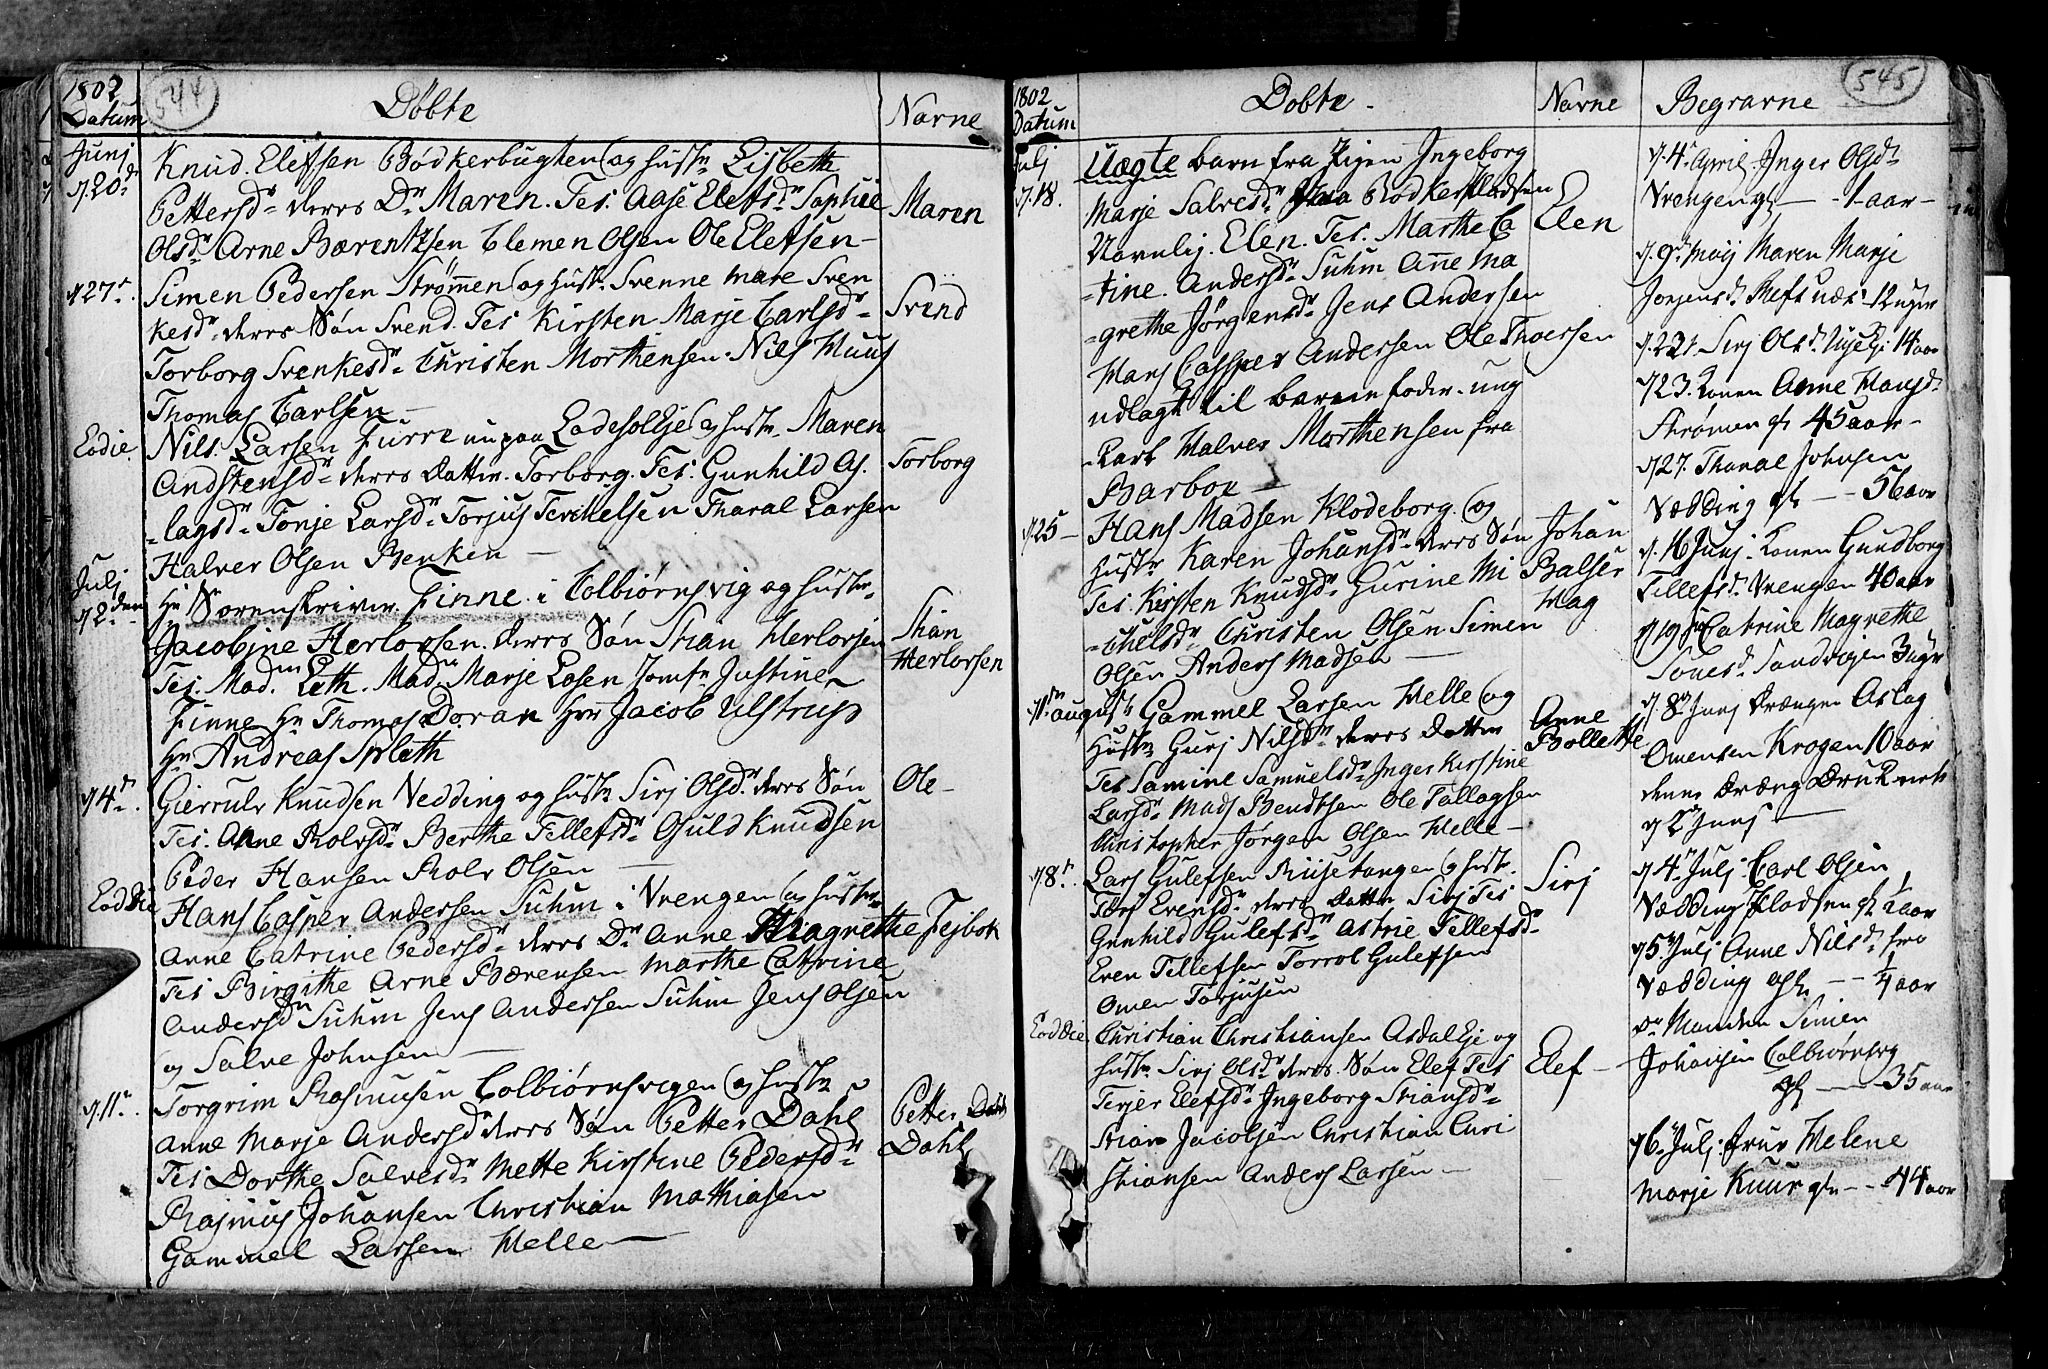 1802
Datum
544
Döbte
Navne
Junj
d. 20de
Knud. Elefsen Bödkerbugten (og hustr Lisbeth
Pettersdr deres Dr Maren. Tes. Aase Elefsdr Sophie
Olsdr Arne Bærentzen Clemen Olsen Ole Elefsen –
Maren
d 27.
Simen Pedersen Strømmen (og hustr Svenne Mare Sven
kesdr deres Søn Svend. Tes Kirsten Marje Carlsdr
Torborg Svenkesdr Christen Morthensen. Nils Huus
Thomas Carlsen –
Svend
Eodie.
Nils. Larsen Furre nu paa Ladesollejе (og hustr. Maren
Andstensdr deres Datter. Torborg. Tes. Gunhild As.
-lagsdr Tonje Larsdr Torjus Terchelsen Tharal Larsen
Halver Olsen Benken –
Torborg
Julj
d 2den
Hr Sorenskriver. Finne. i Colbiørnsvig og hustr.
Jacobine Herlovsen. deres Søn Stian Herlovsen
Tes. Madm Leth. Madm Marje Losen Jomfr Justine
Finne Hr Thomas Doran Hrr Jacob Ulstrup
Hr Andreas Spleth
Stian
Herlovsen
d 4de.
Gierrulv Knudsen Vedding og hustr Sirj Olsdr deres Søn
Tes. Anne Rolvsdr Berthe Tellefsdr Guld Knudsen
Peder Hansen Rolv Olsen –
Ole –
Eoddie
Hans Casper Andersen Suhm i Vrengen (og hustr
Anne Catrine Pedersdr deres Dr Anne Magrethe Fejbok
Tes Birgithe Arne Bærensen Marthe Catrine
Andersdr Suhm Jens Andersen Suhm Jens Olsen
og Salve Johnsen –
d. 11.
Torgrim Rasmusen Colbiørnsvigen (og hustr
Anne Marje Andersdr deres Søn Petter Dahl
Tes Dorthe Salvesdr Mette Kirstine Pedersdr
Rasmus Johansen Christian Mathiasen
Gammel Larsen Helle –
Petter Dahl
Dahl
1802
Datum
Dobte –
Navne
Begravne
545
Julj
d. 18.
Uægte barn fra Pigen Ingeborg
Marje Salvesdr Bödkerpladsen
Navnlig. Elen. Tes. Marthe Ca
-tine. Andersdr Suhm Anne Ma
-grethe Jörgensdr Jens Andersen
Hans Casper Andersen Ole Thoersen
udlagt til barnefoder. ung
-karl Halver Morthensen fra
Barboe –
Elen
d 25 –
Hans Madsen Klodeborg. (og
hustr Karen Johansdr deres Søn
Tes. Kirsten Knudsdr Gurine Mi
-chelsdr Christen Olsen Simen
Olsen Anders Madsen –
Johan
Balser
Hag
d 1ste august
Gammel Larsen Helle (og
Hustr Gurj Nilsdr deres Datter
Tes Samine Samuelsdr Inger Kirstine
Larsdr Mads Bendtsen Ole Tallagsen
Christopher Jörgen Olsen Helle –
Anne
Bollette
d 8.
Lars Gulefsen Riisetangen (og hust.
Torj Evensdr deres Datter Sirj Tes
Gunhild Gulefsdr Astrie Tellefsdr
Even Tellefsen Torrol Gulefsen
Omen Torjusen
Sirj
Eoddie
Christian Christiansen Asdal Eje og
hustr Sirj Olsdr deres Søn Elef Tes
Terjer Elefsdr Ingeborg Stiansdr
Stian Jacobsen Christian Chri
stiansen Anders Larsen –
Elef –
d. 4 April. Inger Olsdr
Vrengen gl – 1 aar –
d. 9de Maij Maren Marje
Jorgensdr Refsnæs 12 uger
d. 23. Sirj Olsdr 14 aar
d 23. Konen Anne Hansdr
Strømen gl 45 aar –
d 27. Tharal Johnsen
Vedding gl – – 56 aar
d. 16 Junj. Konen Gundborg
Tellefsdr Vrengen 40 aar
d 19 Catrine Magrethe
Tonesdr Sandvigen 3 ugr
d. 8 Junj Drængen Aslag
Omensen Krogen 10 aar
denne Dræng Druknede
d 2 Junj –
d 4 Julj. Carl Olsen
Vedding Pladsen gl 1 aar
d 5 Julj Anne Nilsdr fra
Vedding gl – – 1/4 aar
Do Manden Simen
Johansen Colbiørnsvg
gl – – 35 aar
d 6 Julj. Frue Helene
Marje Kuur gl – – 44 aar